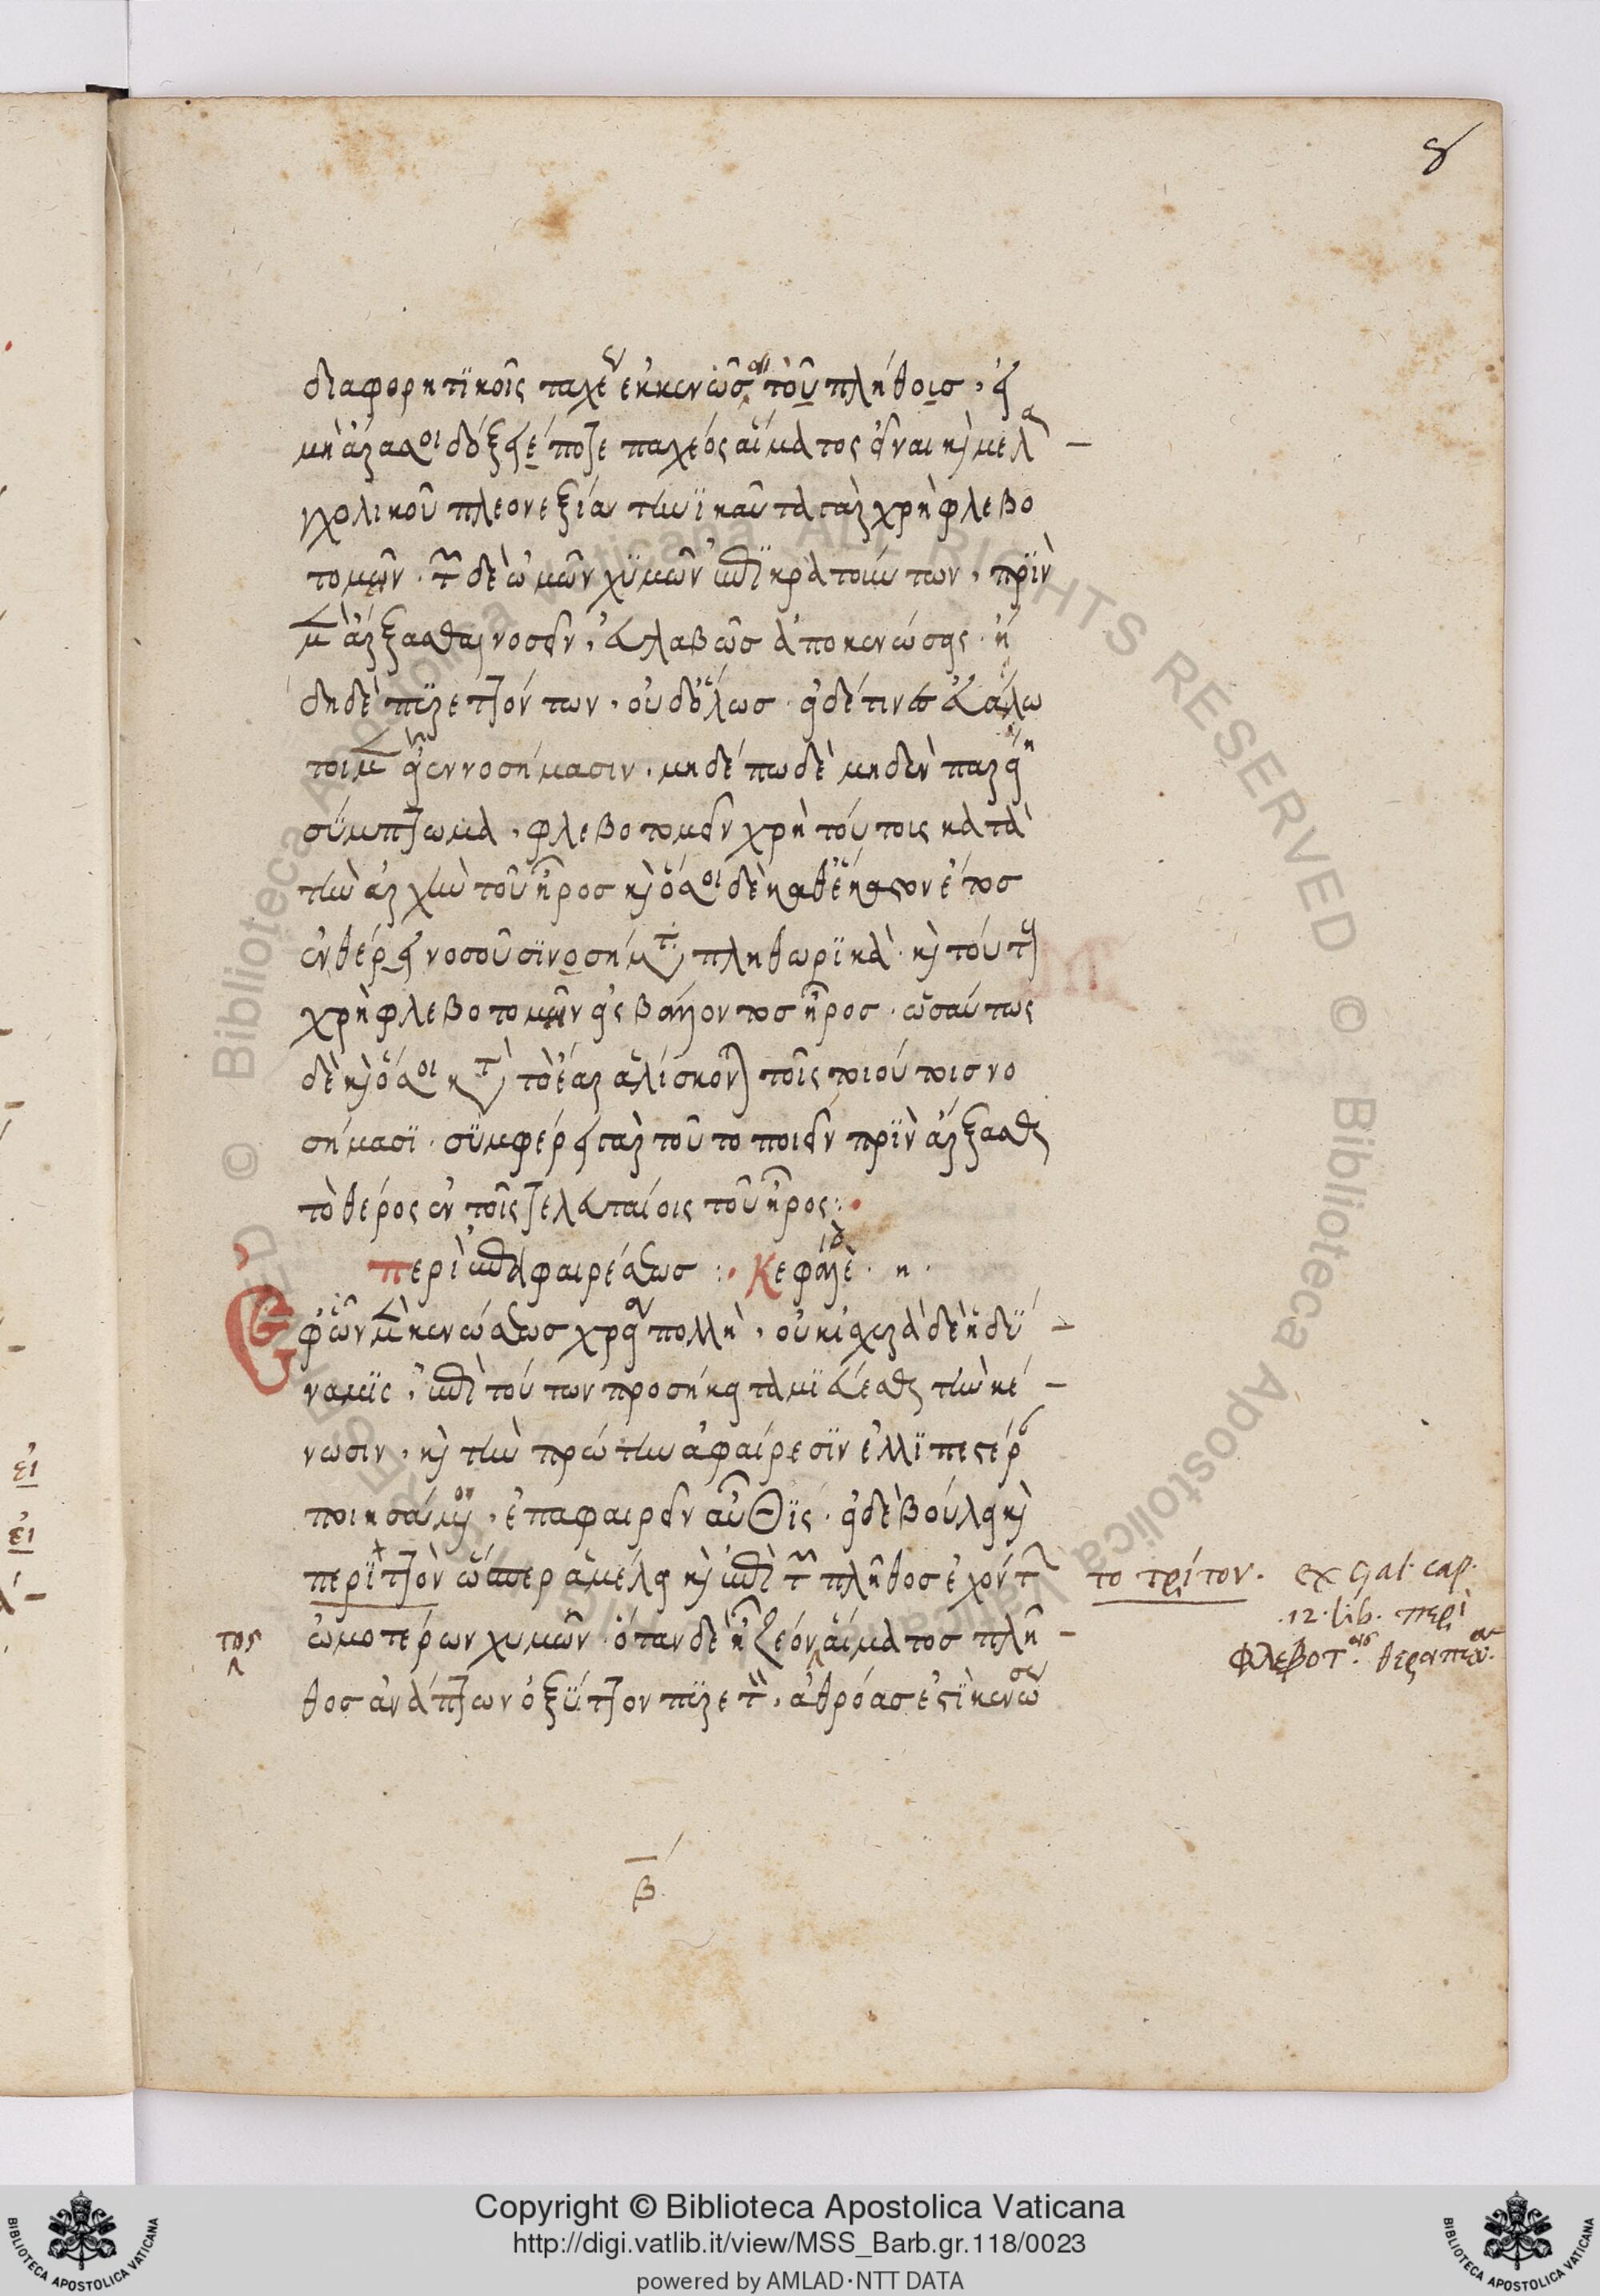 8
διαφορητϊκοῖς ταχέως ἐκκενώσας τοῦ πλήθους, εἰ
μὴ ἄρα σοι δόξειέ ποτε παχέος αἵματος εἶναι καὶ μελαγ
χολικοῦ πλεονεξίαν τηνϊκαῦτα γὰρ χρὴ φλεβο
τομεῖν. τῶν δὲ ὠμῶν χϋμῶν ἐπϊκρατούντων, πρϊν
μὲν ἄρξασθαι νοσεῖν, εὐλαβῶσ ἀποκενώσεις. ἤ
δη δὲ πϋρεττόντων, οὐδόλωσ. εἰ δέ τινεσ εὐάλω
τοι μὲν εἶεν νοσήμασιν, μηδέπω δὲ μηδὲν παρείη
σύμπτωμα, φλεβοτομεῖν χρὴ τούτοις κατὰ
τὴν ἀρχὴν τοῦ ἦροσ καὶ ὅσοι δὲ καθ' ἕκαστον ἔτοσ
ἐν θέρει νοσοῦσϊ νοσήματα πληθωρϊκὰ. καὶ τούτους
χρὴ φλεβοτομεῖν εἰσβάλλοντοσ ἦροσ. ὡσαύτως
δὲ καὶ ὅσοι κατὰ τὸ ἔαρ ἁλίσκονται τοῖς τοιούτοισ νο
σήμασϊ. σϋμφέρει γὰρ τοῦτο ποιεῖν πρϊν ἄρξασθαι
τὸ θέρος ἐν τοῖς τελευταίοις τοῦ ἦρος:
περὶ ἐπαφαιρέσεωσ: Κεφάλαιον. η.
Ἐφ' ὧν μὲν κενώσεωσ χρεία πολλὴ, οὐκ ἰσχυρὰ δὲ ἡ δύ
ναμϊς, ἐπὶ τούτων προσήκει ταμϊεύεσθαι τὴν κέ
νωσιν, καὶ τὴν πρώτην ἀφαίρεσϊν ἐλλϊπεστέραν
ποιησάμενον, ἐπαφαιρεῖν αὖθϊς. εἰ δὲ βούλει καὶ
περϊττὸν ὥσπερ ἀμέλει καὶ ἐπὶ τῶν πλῆθοσ ἐχόντων
ὠμοτέρων χυμῶν. ὅταν δὲ ἢ ζέον αἵματοσ πλῆ
θοσ ἀνάπτων ὀξύτατον πϋρετὸν, ἀθρόασ ἐστϊ κενώσεων
το τρίτον. ex Gal. cap.
.12. lib. περὶ
Φλεβοτ. θεραπεία.
τος
β
ει
ἐι
Copyright © Biblioteca Apostolica Vaticana
http://digi.vatlib.it/view/MSS_Barb.gr.118/0023
powered by AMLAD·NTT DATA
BIBLIOTECA APOSTOLICA VATICANA
BIBLIOTECA APOSTOLICA VATICANA
© Biblioteca Apostolica Vaticana ALL RIGHTS RESERVED © Biblioteca Apostolica Vaticana